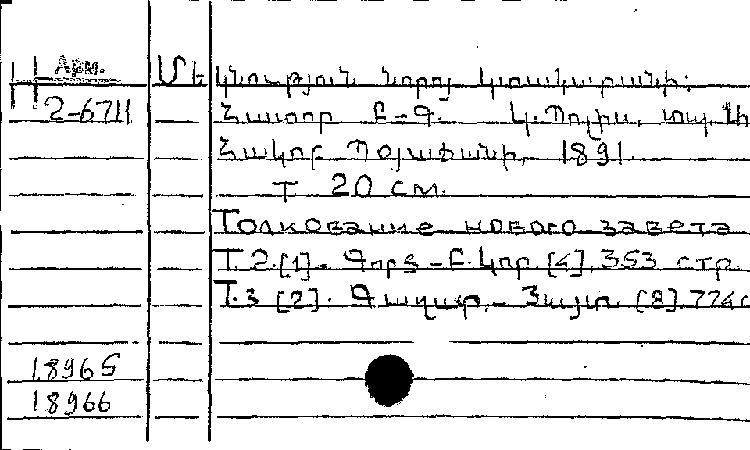 Арм.
Մեկնութիւն նորոյ կտակարանի:
2-6711 Հատոր Բ-Գ. Կ.Պոլիս, տպ.
Յակոբ Պօյաճեանի, 1891.
T 20 см.
Толкование нового завета
Т. 2. [1]. Գործ-Բ. Կոր. [4], 353 стр.
Т. 3 [2]. Գաղատ,- Յայտ. [8]. 774 с
18965
18966